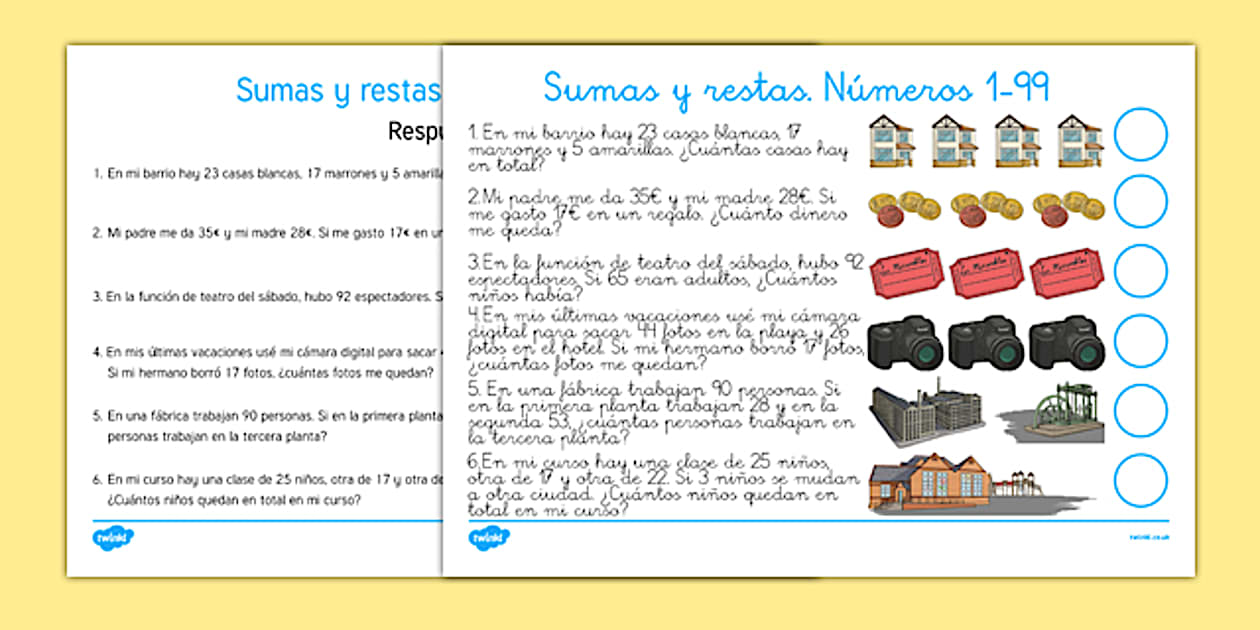 Sumas y restas
Respu
1. En mi barrio hay 23 casas blancas, 17 marrones y 5 amarilla
2. Mi padre me da 35€ y mi madre 28€. Si me gasto 17€ en ur
3. En la función de teatro del sábado, hubo 92 espectadores. S
4. En mis últimas vacaciones usé mi cámara digital para sacar
Si mi hermano borró 17 fotos, ¿cuántas fotos me quedan?
5. En una fábrica trabajan 90 personas. Si en la primera planta
personas trabajan en la tercera planta?
6. En mi curso hay una clase de 25 niños, otra de 17 y otra de
¿Cuántos niños quedan en total en mi curso?
twinkl
Sumas y restas. Números 1-99
1. En mi barrio hay 23 casas blancas, 17
marrones y 5 amarillas. ¿Cuántas casas hay
en total?
2.Mi padre me da 35€ y mi madre 28€. Si
me gasto 17€ en un regalo. ¿Cuánto dinero
me queda?
3.En la función de teatro del sábado, hubo 92
espectadores. Si 65 eran adultos, ¿Cuántos
niños había?
4.En mis últimas vacaciones usé mi cámara
digital para sacar 44 fotos en la playa y 26
fotos en el hotel. Si mi hermano borró 17 fotos,
¿cuántas fotos me quedan?
5. En una fábrica trabajan 90 personas. Si
en la primera planta trabajan 28 y en la
segunda 53, ¿cuántas personas trabajan en
la tercera planta?
6.En mi curso hay una clase de 25 niños,
otra de 17 y otra de 22. Si 3 niños se mudan
a otra ciudad. ¿Cuántos niños quedan en
total en mi curso?
twinkl
twinkl.co.uk